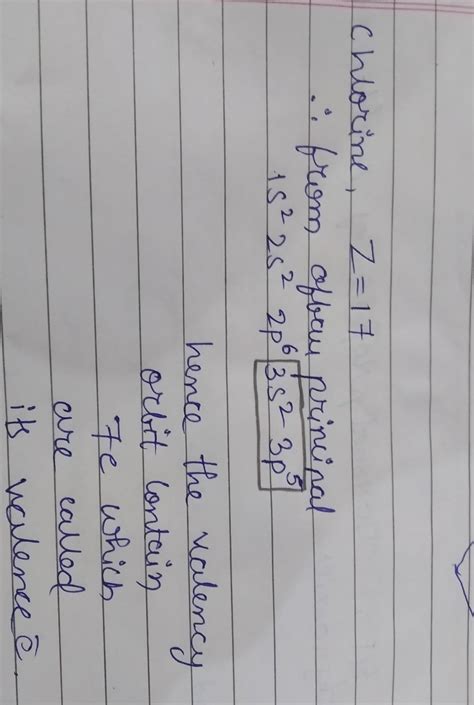 Chlorine, Z=17
∴ from afbau principal
1s² 2s² 2p⁶ 3s² 3p⁵
hence the valency
orbit contain
7e which
are called
its valence ē.